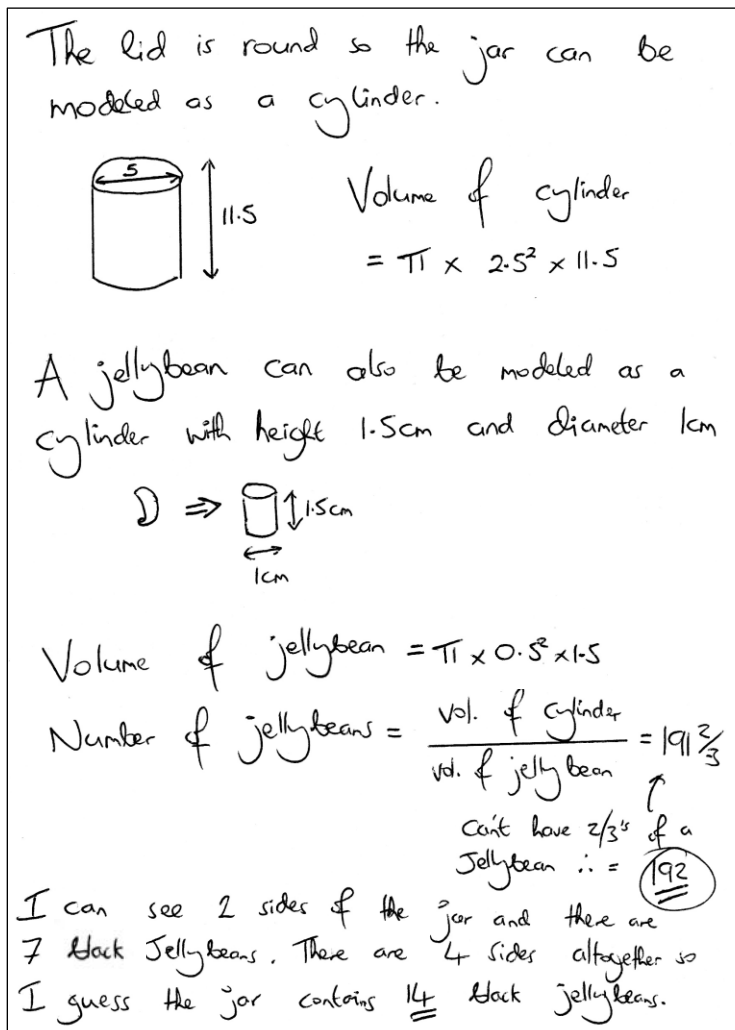 The lid is round so the jar can be
modeled as a cylinder.
5
11.5
Volume of cylinder
= π × 2.5² × 11.5
A jellybean can also be modeled as a
cylinder with height 1.5cm and diameter 1cm
⇒
1.5cm
1cm
Volume of jellybean = π × 0.5² × 1.5
Number of jellybeans = vol. of cylinder / vol. of jelly bean = 191 2/3
Can't have 2/3's of a
Jellybean ∴ = 192
I can see 2 sides of the jar and there are
7 black Jellybeans. There are 4 sides altogether so
I guess the jar contains 14 black jellybeans.